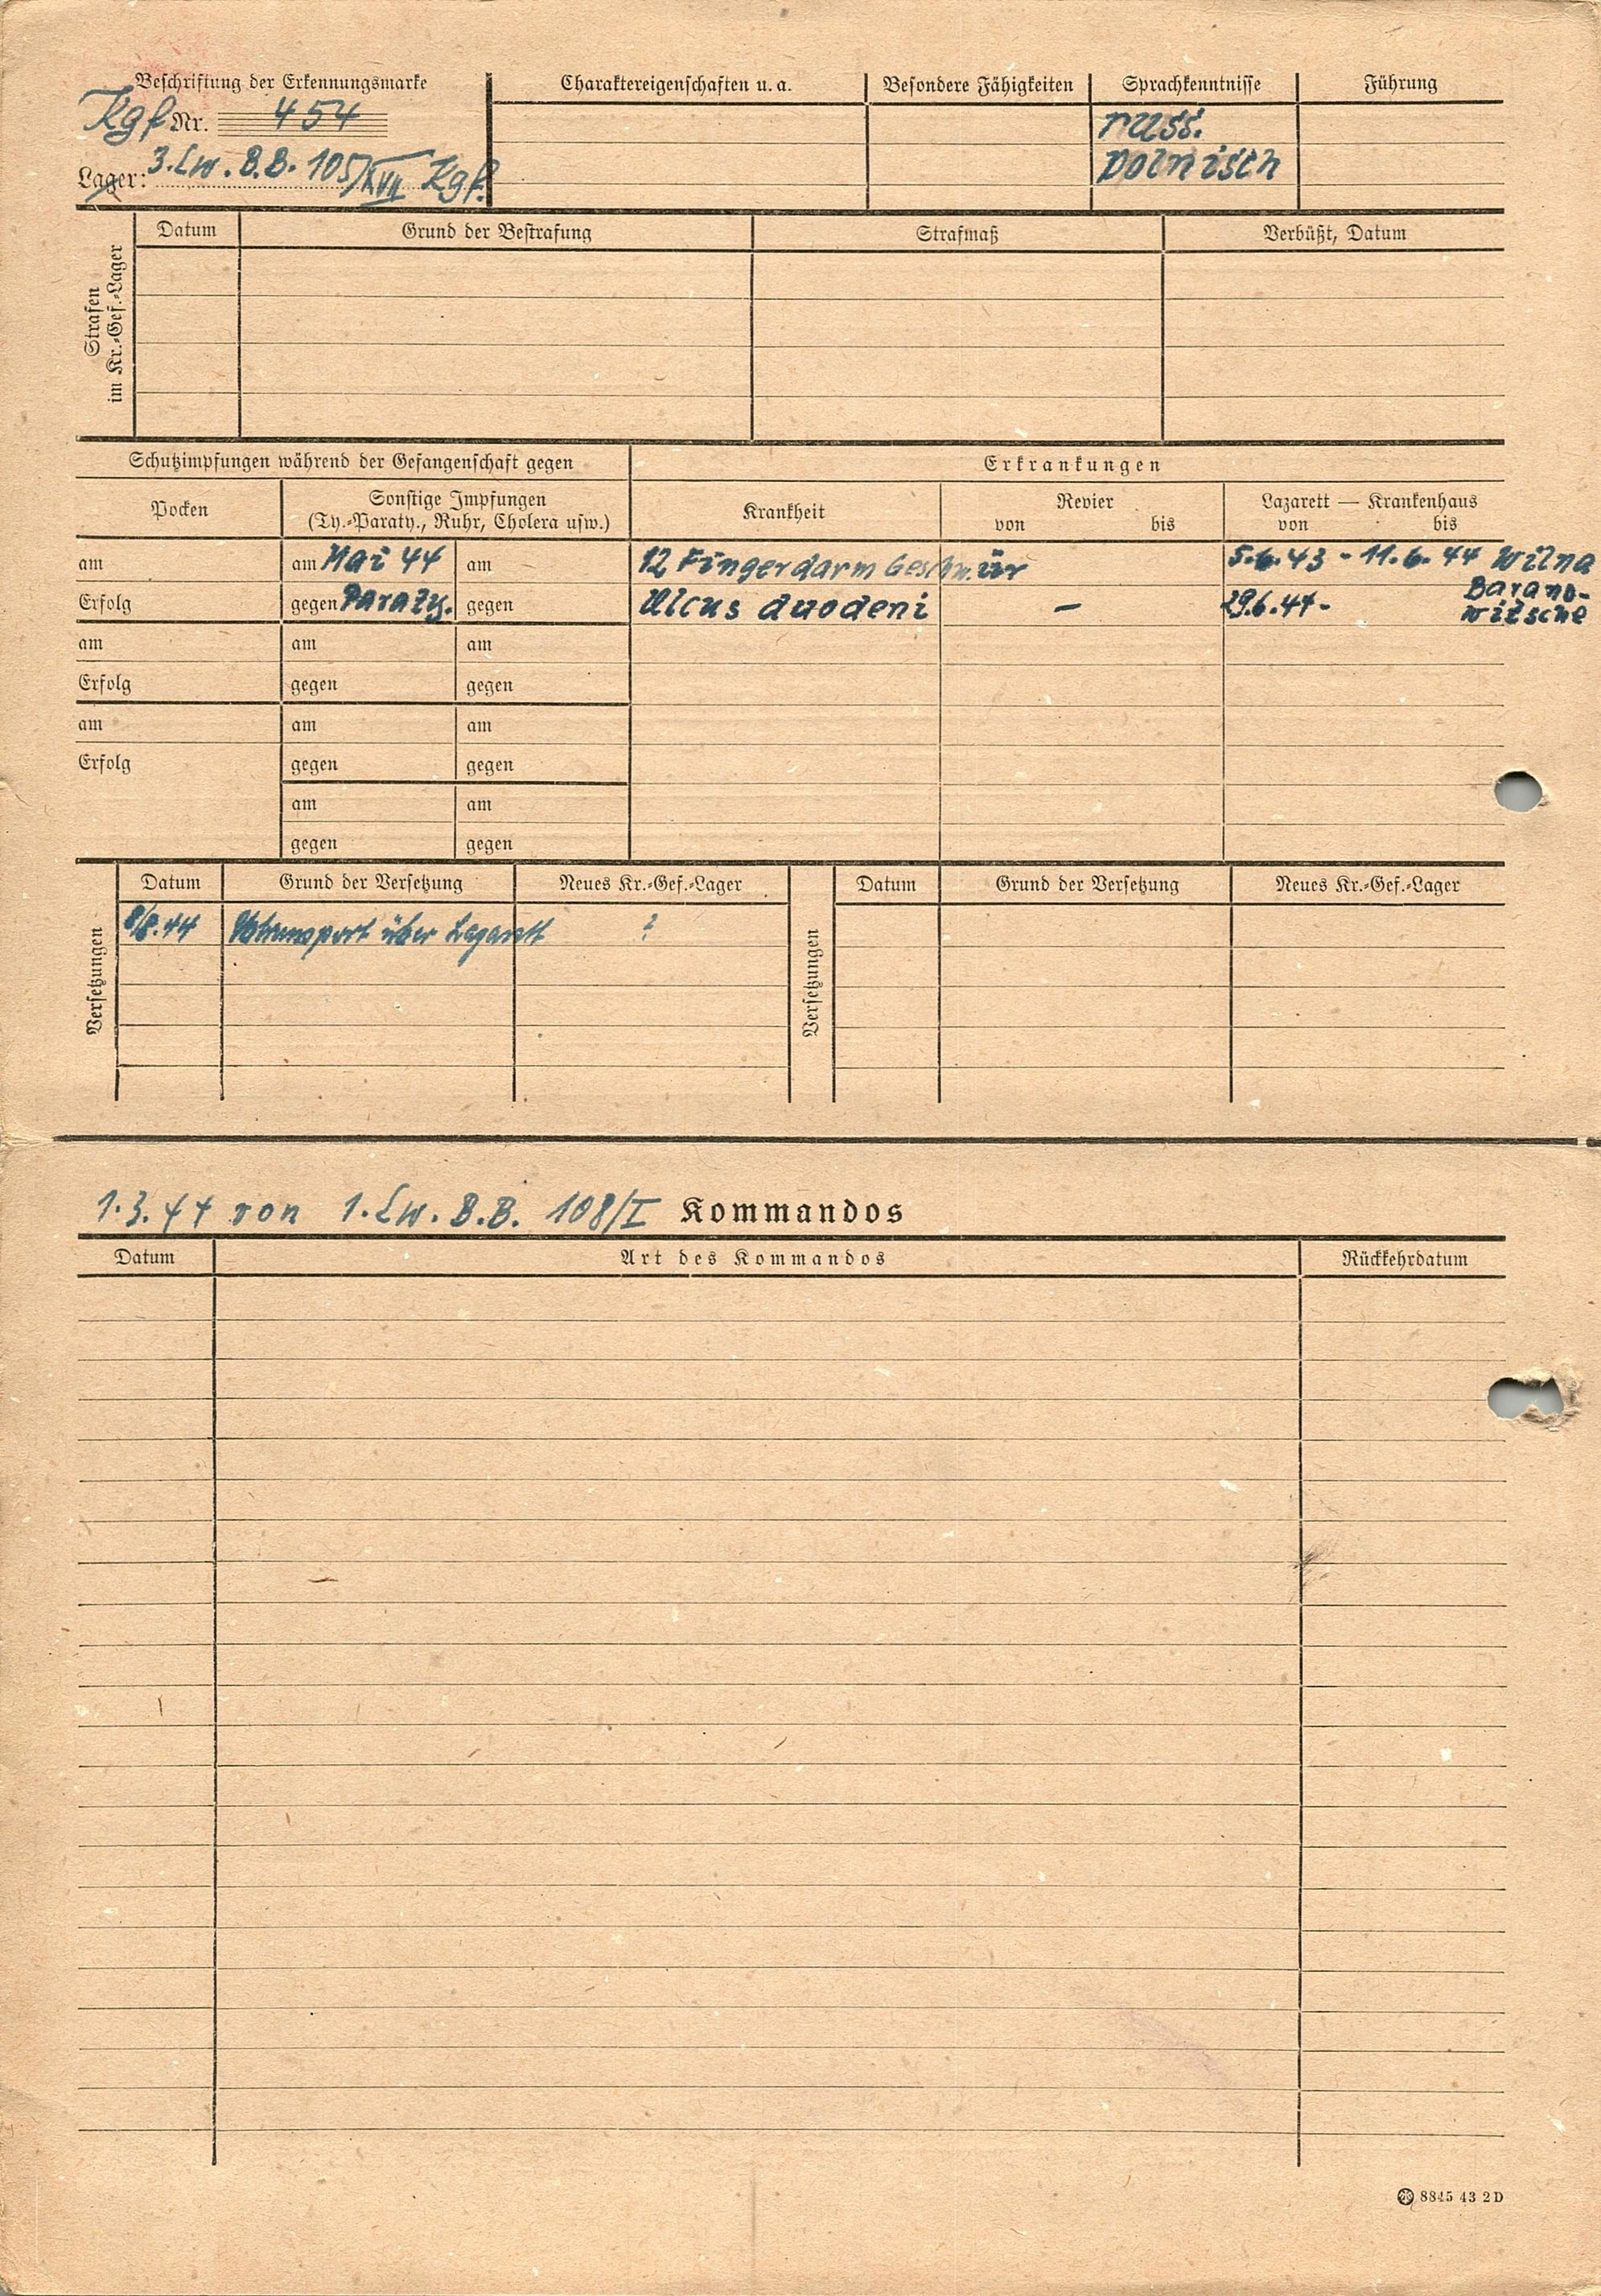 Beschriftung der Erkennungsmarke
Kgf Nr. 454
Lager: 3. Lw. B.B. 105/XVII Kgf.
Charaktereigenschaften u. a.
Besondere Fähigkeiten
Sprachkenntnisse
russ.
polnisch
Führung
Strafen
im Kr.-Gef.-Lager
Datum
Grund der Bestrafung
Strafmaß
Verbüßt, Datum
Schutzimpfungen während der Gefangenschaft gegen
Erkrankungen
Pocken
Sonstige Impfungen
(Ty.-Paraty., Ruhr, Cholera usw.)
Krankheit
Revier
von bis
Lazarett — Krankenhaus
von bis
am am Mai 44 am 12 Fingerdarm Geschw.ür 5.6.43 - 11.6.44 Wilna
Erfolg gegen Paraty. gegen Ulcus duodeni – 29.6.44 - Barano-
witsche
am am am
Erfolg gegen gegen
am am am
Erfolg gegen gegen
am am
gegen gegen
Versetzungen
Datum Grund der Versetzung Neues Kr.-Gef.-Lager
8/8.44 Abtransport über Lazarett ?
Versetzungen
Datum Grund der Versetzung Neues Kr.-Gef.-Lager
1.3.44 von 1. Lw. B.B. 108/I Kommandos
Datum Art des Kommandos Rückkehrdatum
8845 43 2 D